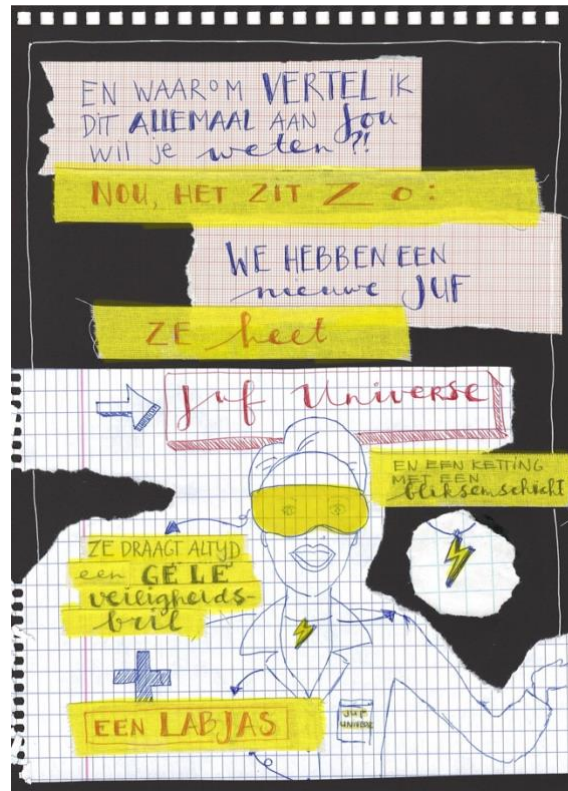 EN WAAROM VERTEL iK
DiT ALLEMAAL AAN jou
wil je weten?!
NOU, HET ZIT Z o:
WE HEBBEN EEN
nieuwe JUF
ZE heet
Juf Universe
EN EEN KETTING
MET EEN
bliksemschicht
ZE DRAAGT ALTYD
een GELE
veiligheids-
bril
EEN LABJAS
JUF
UNIVERSE